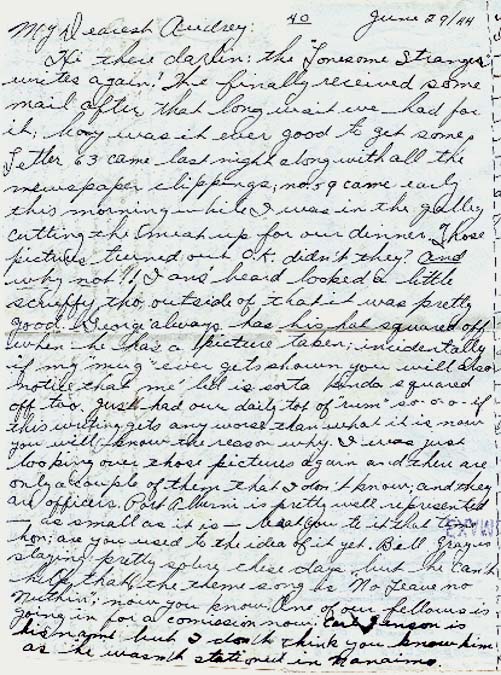 My Dearest Audrey: 40 June 29/44
Hi there darlin: the "Lonesome Stranger"
writes again! We finally received some
mail after that long wait we had for
it; boy was it ever good to get some.
Letter 63 came last night along with all the
newspaper clippings; no. 59 came early
this morning while I was in the galley
cutting the meat up for our dinner. Those
pictures turned out O.K. didn't they? And
why not!! beard looked a little
scruffy tho, outside of that it was pretty
good. George always has his hat squared off
when he has a picture taken; incidentally
if my "mug" ever gets shown you will also
notice that me' lid is sorta kinda squared
off too. Just had our daily tot of "rum" so-o-o- if
this writing gets any worse than what it is now
you will know the reason why. I was just
looking over those pictures again and there are
only a couple of them that I don't know; and they
are officers. Port Alberni is pretty well represented
— as small as it is — you to it that
hon; are you used to the idea of it yet. Bell Gray is
staying pretty sobre these days but he can't
help that the theme song is "No Leave no
Nuthin"; now you know. One of our fellows is
going in for a comission now; Carl is
his name but I don't think you know him
as he wasn't stationed in Nanaimo.